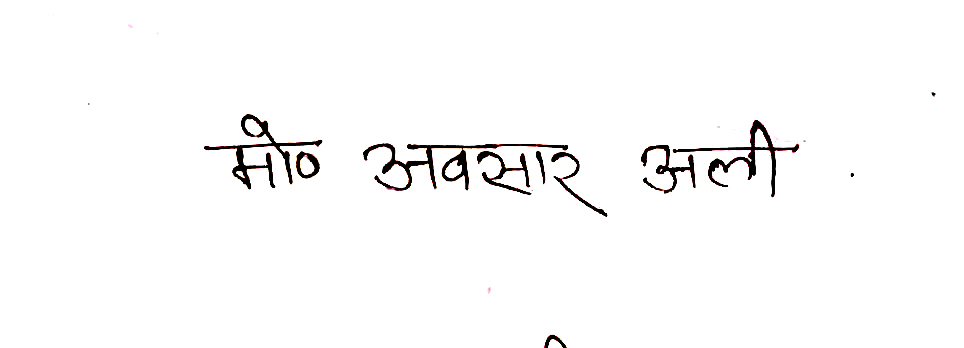 मो० अवसार अली